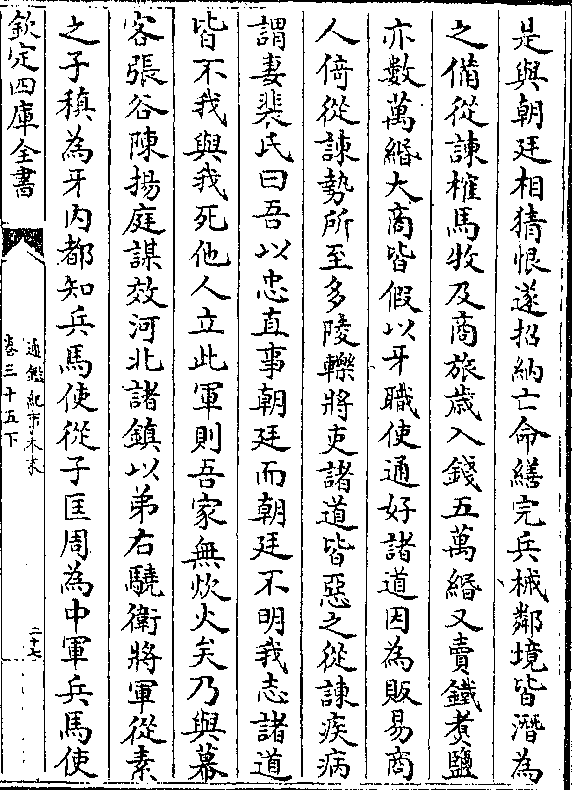 是與朝廷相猜恨遂招納亡命繕完兵械鄰境皆潛為
之備從諫榷馬牧及商旅歳入錢五萬緡又賣鐵煑鹽
亦數萬緡大商皆假以牙職使通好諸道因為販易商
人倚從諫勢所至多陵轢將吏諸道皆惡之從諫疾病
謂妻裴氏曰吾以忠直事朝廷而朝廷不明我志諸道
皆不我與我死他人立此軍則吾家無炊火矣乃與幕
客張谷陳揚庭謀效河北諸鎮以弟右驍衛將軍從素
之子稹為牙内都知兵馬使從子匡周為中軍兵馬使
欽定四庫全書
通鑑紀事本末
卷三十五下
二十七